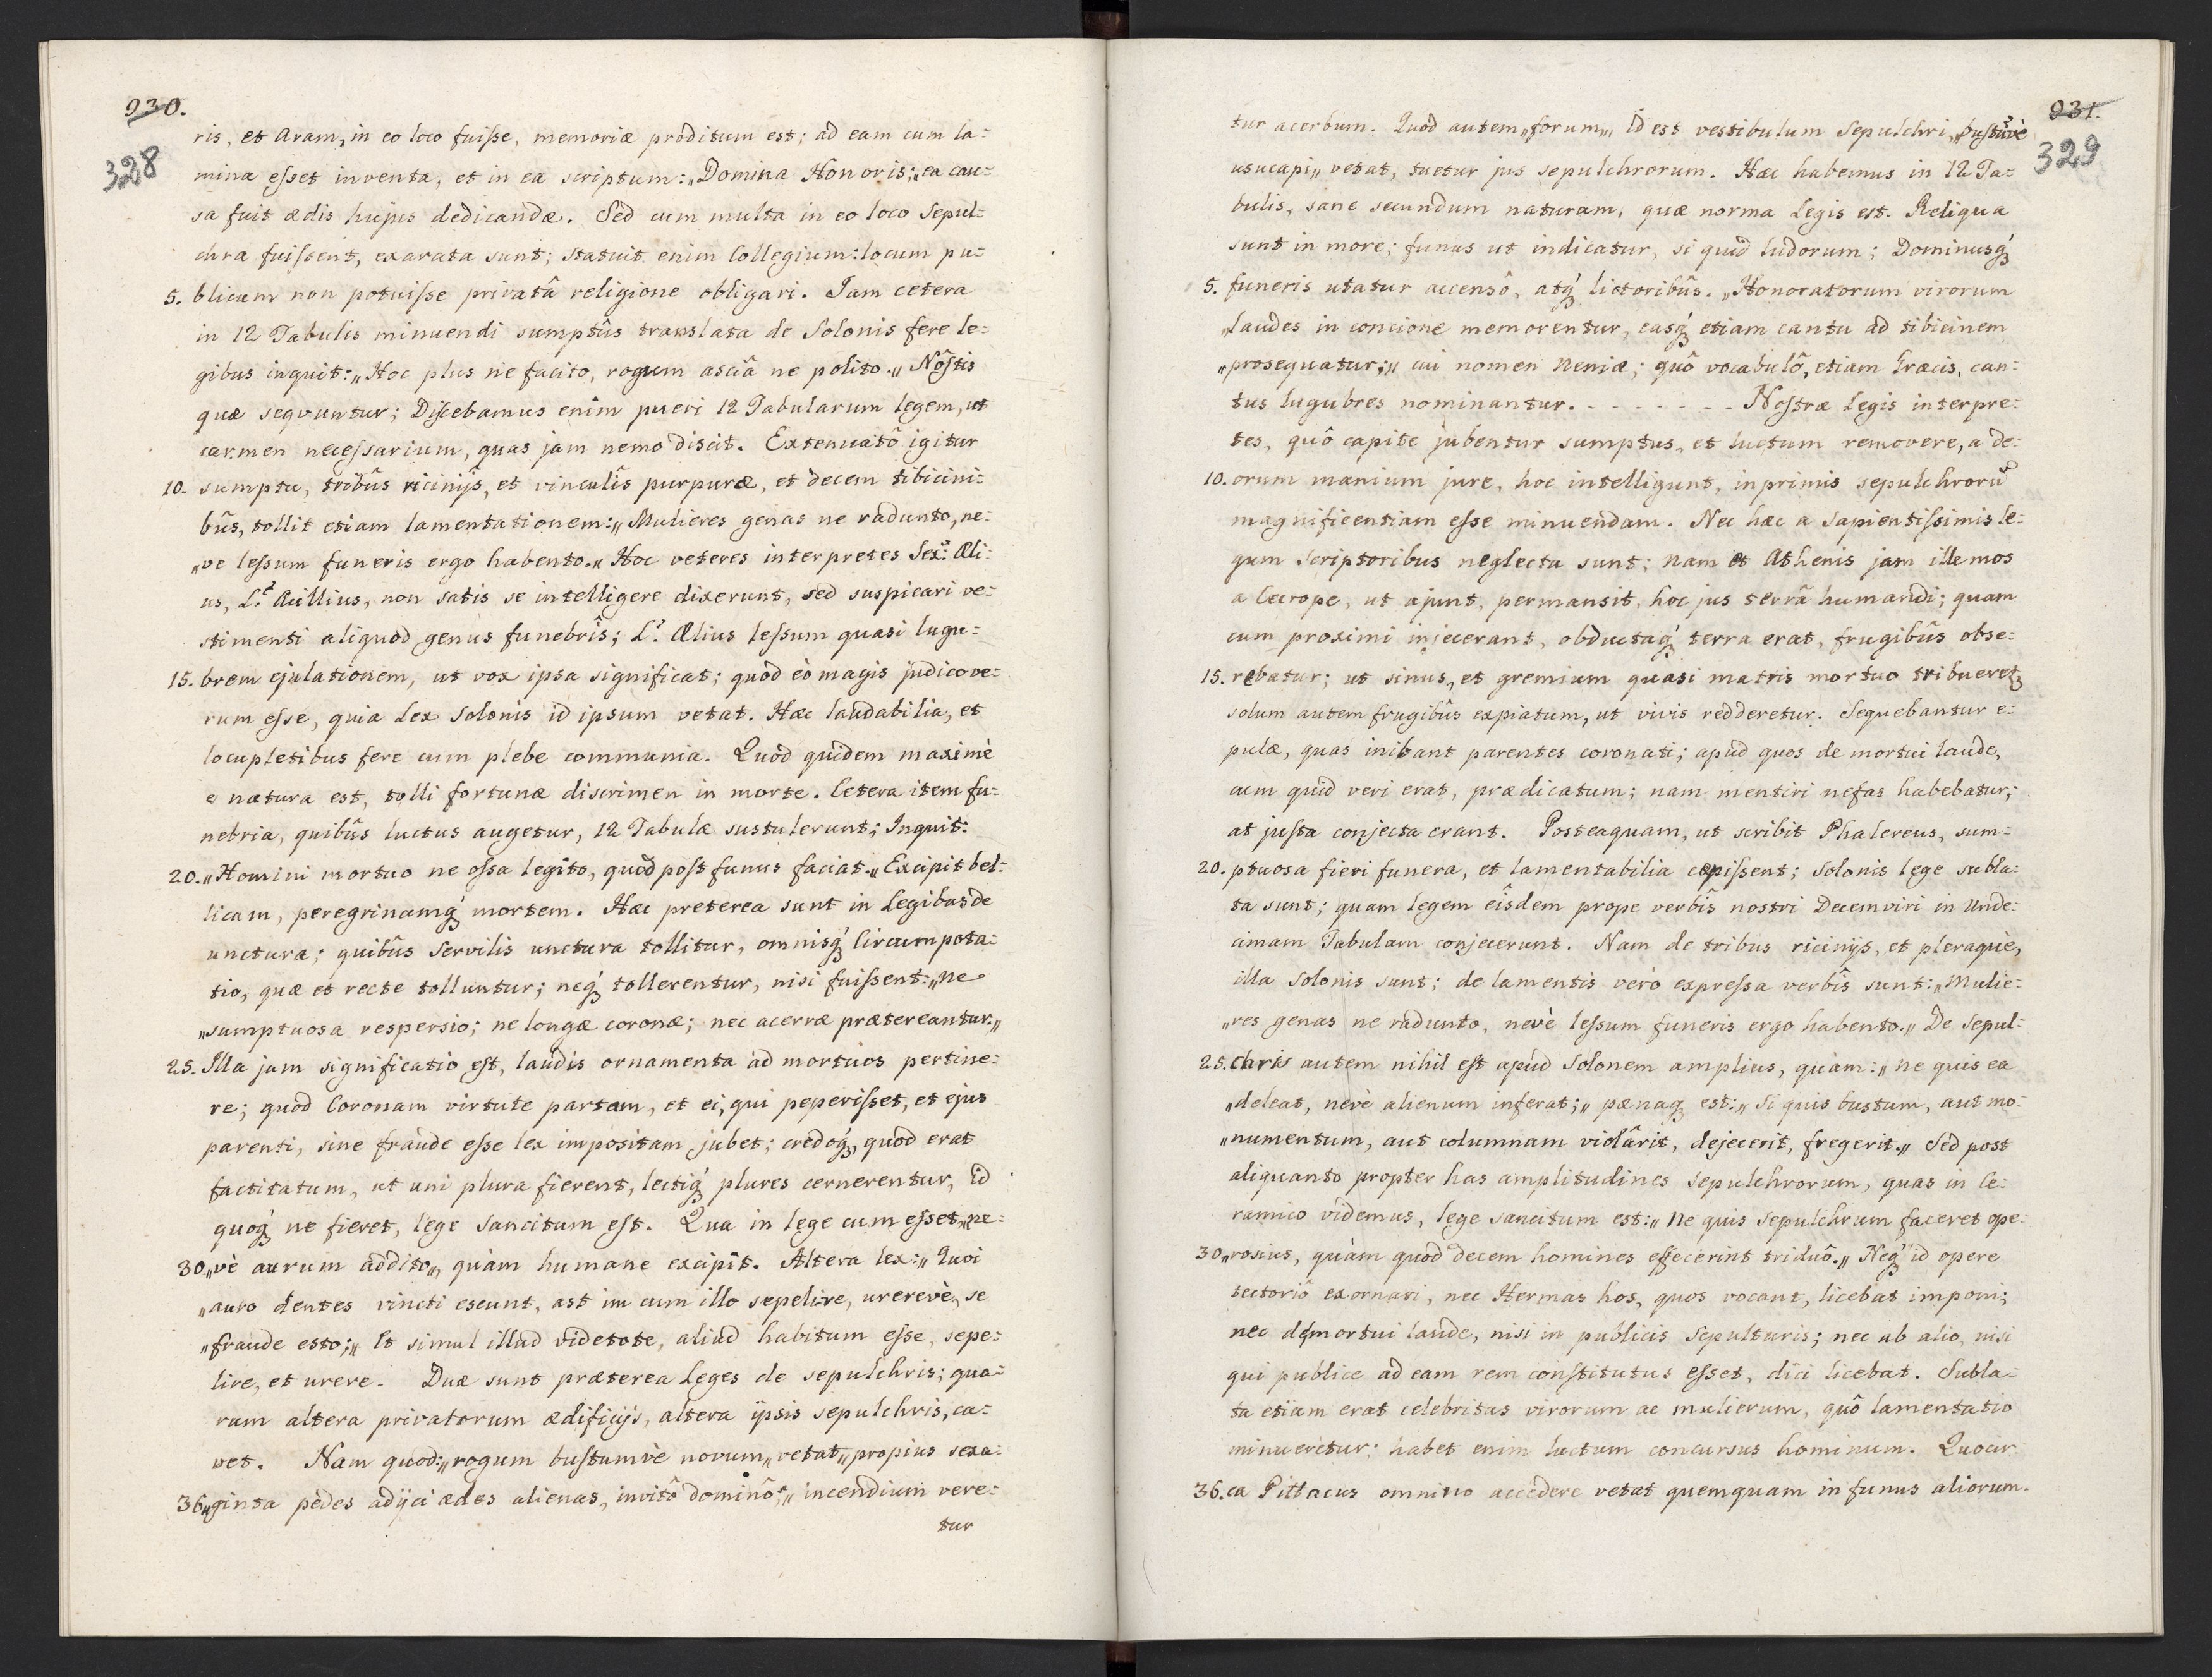 930.
328
ris, et Aram, in eo loco fuiſse, memoriæ proditum est; ad eam cum la=
mina eſset inventa, et in ea scriptum: „Domina Honoris;„ ea cau=
sa fuit ædis hujus dedicandæ. Sed cum multa in eo loco Sepul=
chra fuiſsent, exarata sunt; statuit enim Collegium: locum pu=
5. blicum non potuiſse privatâ religione obligari. Jam cetera
in 12 Tabulis minuendi sumptûs translata de Solonis fere le=
gibus inquit: „Hoc plus ne facito, rogum asciâ ne polito.„ Nôſtis
quæ seqvuntur; Diſcebamus enim pueri 12 Tabularum legem, ut
carmen neceſsarium, quas jam nemo discit. Extenuatô igitur
10. sumptu, tribûs ricinijs, et vinculîs purpuræ, et decem tibicini=
bûs, tollit etiam lamentationem: „Mulieres genas ne radunto, ne=
„ve leſsum funeris ergo habento.„ Hoc veteres interpretes Sex: Æli=
us, L: Acillius, non satis se intelligere dixerunt, sed suspicari ve=
stimenti aliquod genus funebrîs; L: Ælius leſsum quasi lugu=
15. brem ejulationem, ut vox ipsa significat; quod eò magis judico ve=
rum eſse, quia Lex Solonis id ipsum vetat. Hæc laudabilia, et
locupletibus fere cum plebe communia. Quod quidem maximè
e natura est, tolli fortunæ discrimen in morte. Cetera item fu=
nebria, quibûs luctus augetur, 12 Tabulæ sustulerunt; Inquit:
20. „Homini mortuo ne oſsa legito, quòd poſt funus faciat.„ Excipit bel=
licam, peregrinamq́ mortem. Hæc preterea sunt in Legibus de
unctura; quibûs Servilis unctura tollitur, omnisq́ Circumpota=
tio, quæ et recte tolluntur; neq́ tollerentur, nisi fuiſsent: „Ne
„sumptuosa respersio; ne longæ coronæ; nec acerræ prætereantur.„
25. Illa jam significatio eſt, laudis ornamenta ad mortuos pertine=
re; quod Coronam virtute partam, et ei, qui peperiſset, et ejus
parenti, sine fraude eſse lex impositam jubet; credoq́, quod erat
factitatum, ut uni plura fierent, lectiq́ plures cernerentur, id
quoq́ ne fieret, lege Sancitum eſt. Qua in lege cum eſset „ne=
30. „vè aurum addito„ quàm humane excipit. Altera lex: „Quoi
„auro dentes vincti escunt, ast im cum illo sepelire, urerevè, se
„fraude esto;„ Et simul illud videtote, aliud habitum eſse, sepe=
lire, et urere. Duæ sunt præterea Leges de sepulchris; qua=
rum altera privatorum ædificijs, altera ipsis sepulchris, ca=
vet. Nam quod: „rogum buſtumvè novum„ vetat „propius sexa=
36. „ginta pedes adijci ædes alienas, invitô dominô;„ incendium vere=
tur
931.
329
tur acerbum. Quod autem „forum„ id est vestibulum Sepulchri, „buſtũvè
usucapi„ vetat, tuetur jus sepulchrorum. Hæc habemus in 12 Ta=
bulis, sane secundum naturam, quæ norma Legis est. Reliqua
sunt in more; funus ut indicatur, si quid ludorum; Dominusq́
5. funeris utatur accensô, atq́ lictoribûs. „Honoratorum virorum
„laudes in concione memorentur, easq́ etiam cantu ad tibicinem
„prosequatur;„ cui nomen Neniæ; quô vocabulô, etiam Græcis, can=
tus lugubres nominantur. - - - - - - - Noſtræ Legis interpre=
tes, quô capite jubentur sumptus, et luctum removere, a de=
10. orum manium jure, hoc intelligunt, inprimis sepulchrorũ
magnificentiam eſse minuendam. Nec hæc a Sapientiſsimis le=
gum Scriptoribus neglecta sunt; Nam et Athenis jam ille mos
a Cecrope, ut ajunt, permansit, hoc jus terrâ humandi; quam
cum proximi injecerant, obductaq́ terra erat, frugibûs obse=
15. rebatur; ut sinus, et gremium quasi matris mortuo tribueret,
solum autem frugibûs expiatum, ut vivis redderetur. Sequebantur e=
pulæ, quas inibant parentes coronati; apud quos de mortui laude,
cum quid veri erat, prædicatum; nam mentiri nefas habebatur;
at juſta conjecta erant. Posteaquam, ut scribit Phalereus, sum=
20. ptuosa fieri funera, et lamentabilia cæpiſsent; Solonis lege subla=
ta sunt; quam legem eîsdem prope verbîs nostri Decemviri in Unde=
cimam Tabulam conjecerunt. Nam de tribus ricinijs, et pleraque,
illa Solonis sunt; de lamentis verò expreſsa verbîs sunt: „Mulie=
„res genas ne radunto, nevè leſsum funeris ergo habento.„ De Sepul=
25. chris autem nihil eſt apud Solonem amplius, quàm: „ne quis ea
„deleat, nevè alienum inferat;„ pænaq́ est: „si quis bustum, aut mo=
„numentum, aut columnam violârit, dejecerit, fregerit.„ Sed post
aliquanto propter has amplitudines Sepulchrorum, quas in Ce=
ramico videmus, lege sancitum est: „Ne quis Sepulchrum faceret ope=
30. „rosius, quàm quod decem homines effecerint triduô.„ Neq́ id opere
tectoriô exornari, nec Hermas hos, quos vocant, licebat imponi;
nec de mortui laude, nisi in publicis Sepulturis; nec ab alio, nisi
qui publice ad eam rem conſtitutus eſset, dici licebat. Subla=
ta etiam erat celebritas virorum ac mulierum, quô lamentatio
minueretur: habet enim luctum concursus hominum. Quocir=
36. ca Pittacus omnino accedere vetat quemquam in funus aliorum.